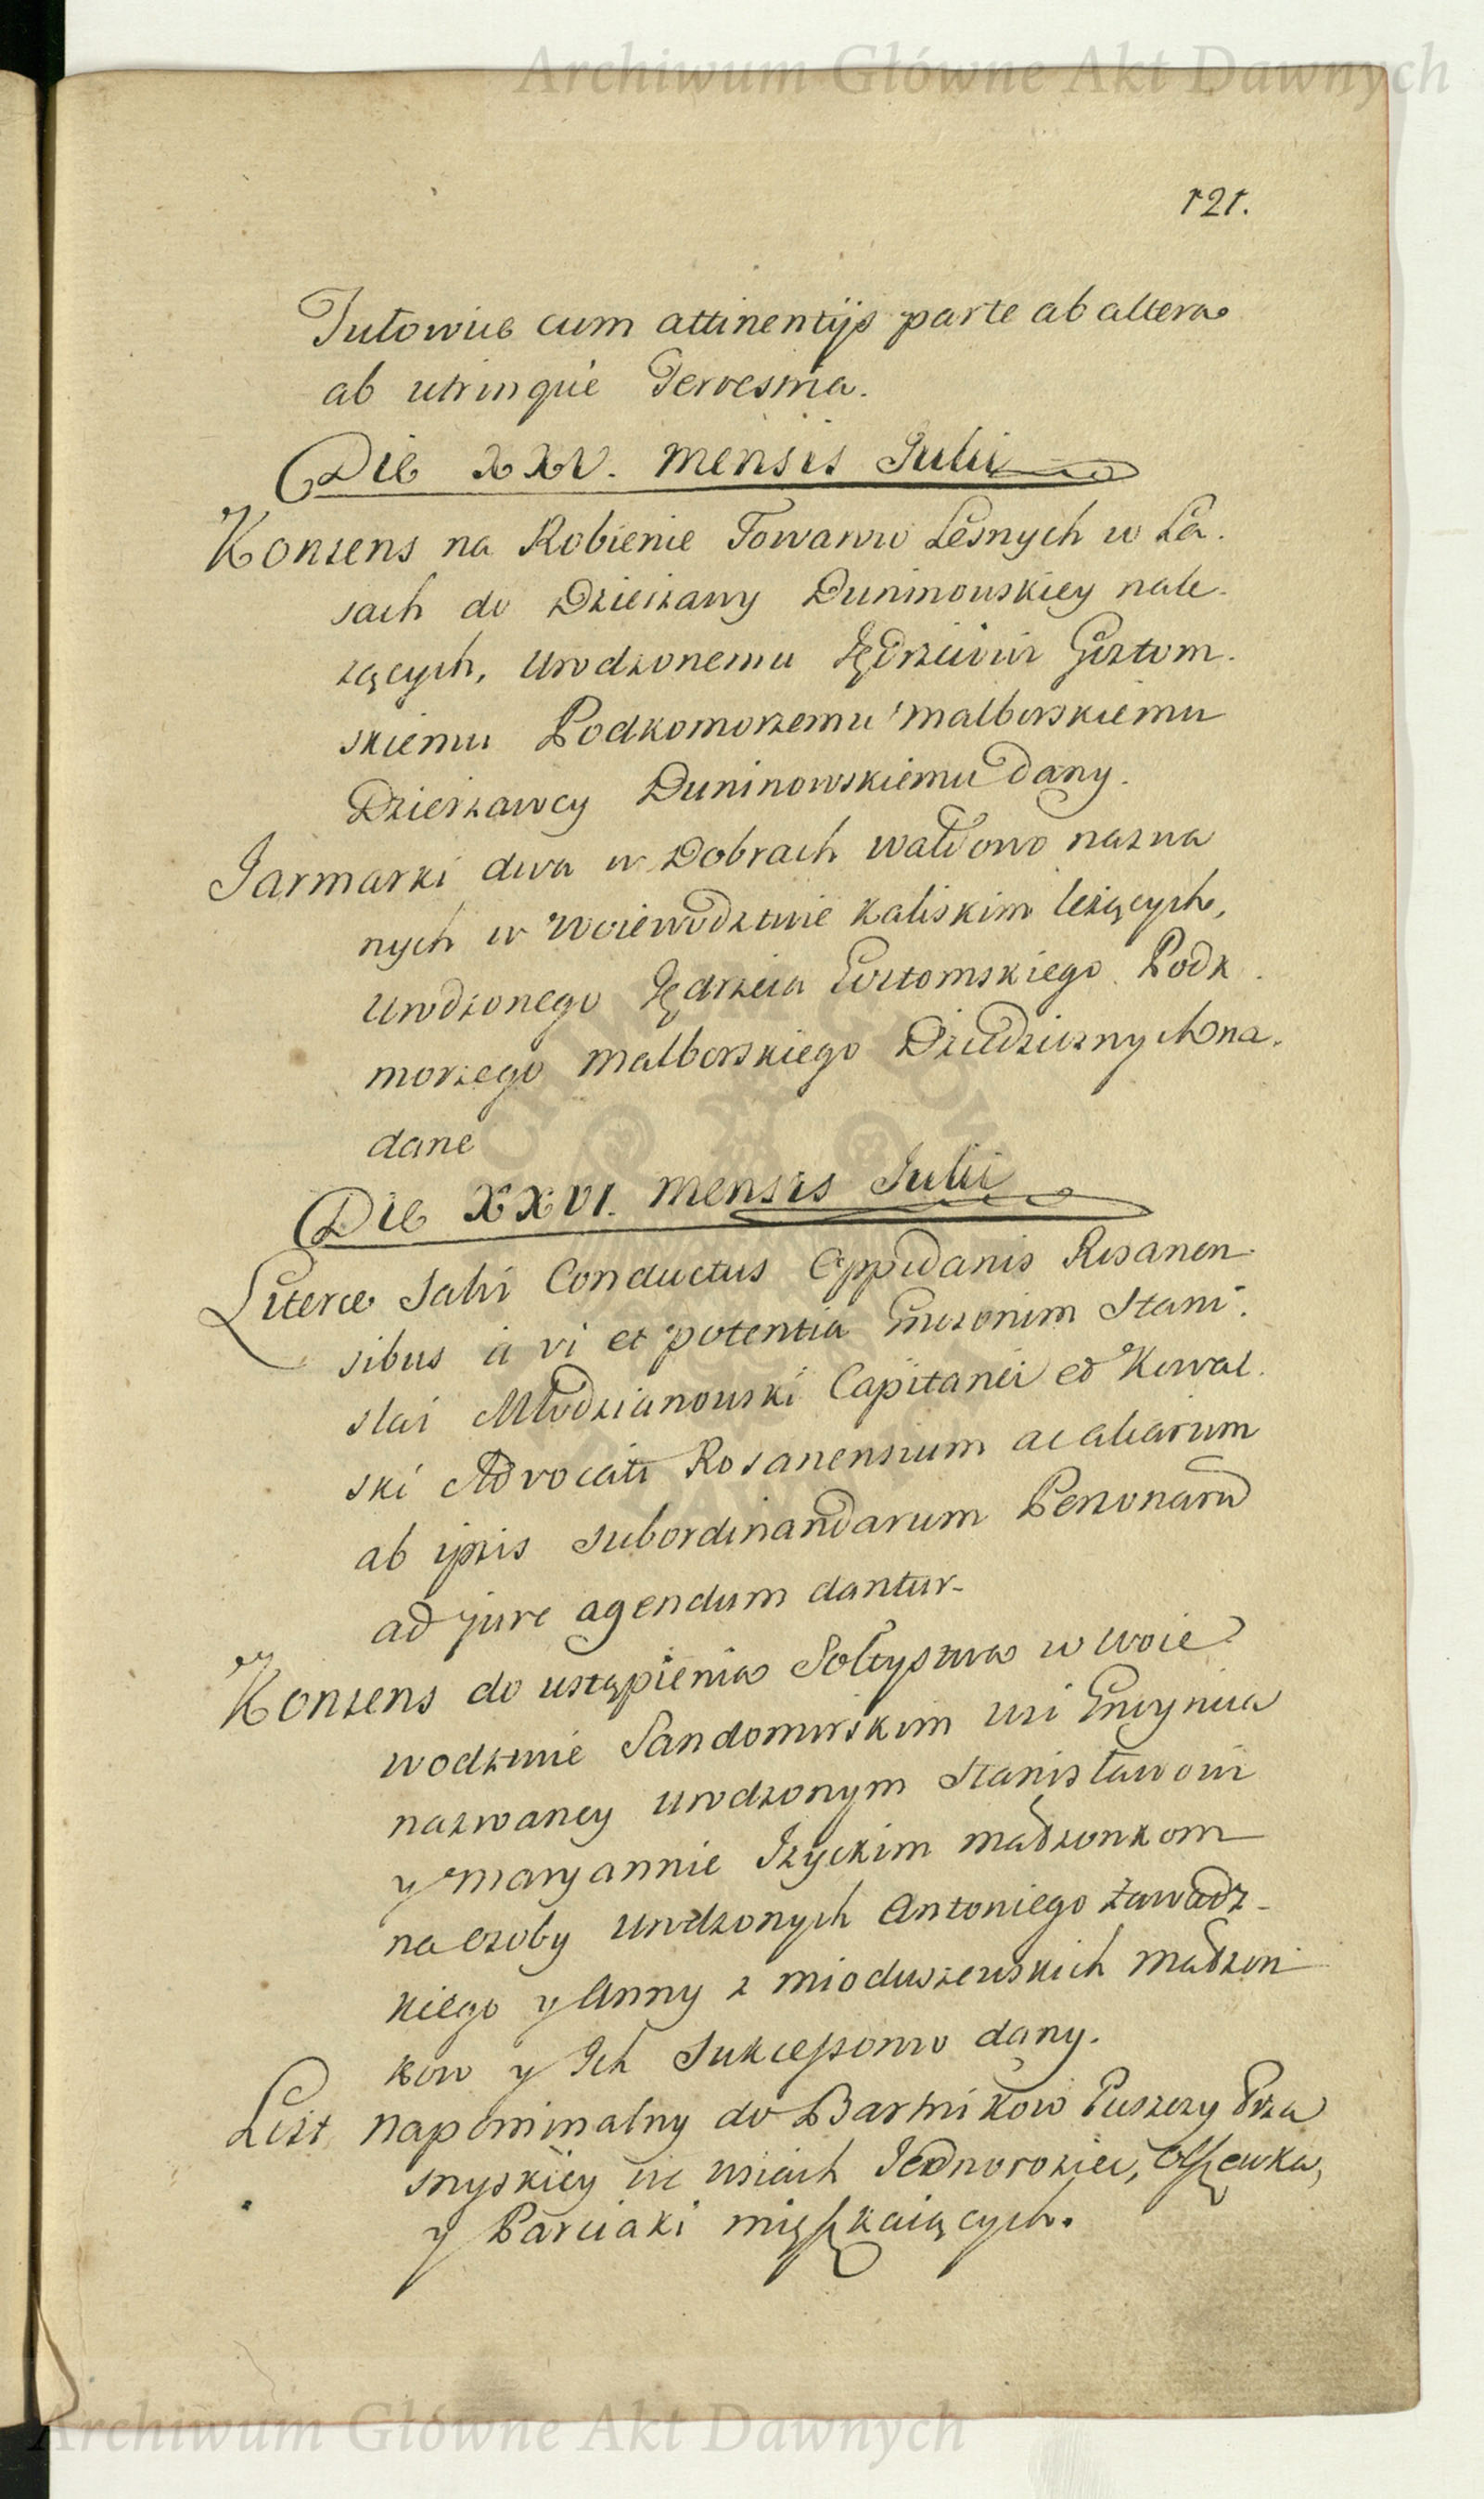 Archiwum Główne Akt Dawnych
121.
Tułowice cum attinentijs parte ab altera
ab utrinque
Die XXV. Mensis Julii
Konsens na Robienie Towarow Lesnych w La.
sach do Dzierzawy Duninowskiey nale.
zących, Urodzonemu Jędrzeiowi Gortom.
skiemu Podkomorzemu Malborskiemu
Dzierzawcy Duninowskiemu dany.
Jarmarki dwa w Dobrach Wałdowo nazwa
nych w Woiewodztwie Kaliskim leżących,
Urodzonego Jędrzeia Gortomskiego Podk.
morzego Malborskiego Dziedzicznych na.
dane
Die XXVI. Mensis Julii
Literæ Salvi Conductus Oppidanis Rosanen
sibus à vi et potentia Grosorum Stani.
slai Młodzianowski Capitanei et Kowal.
ski Advocati Rosanensium ac aliarum
ab ipsis subordinandarum Personarū
ad jure agendum dantur.
Konsens do ustąpienia Sołtystwa w Woie
wodztwie Sandomirskim wsi
nazwaney Urodzonym Stanisławowi
y Maryannie Izyckim Małżonkom
na osoby Urodzonych Antoniego Zawadz-
kiego y Anny z Mioduszewskich Małżon
kow y Ich Sukcessorow dany.
List napominalny do Bartnikow Puszczy Prza
snyskiey we wsiach Jednoroziec, Olszewka,
y Parciaki mięszkaiących.
Archiwum Główne Akt Dawnych